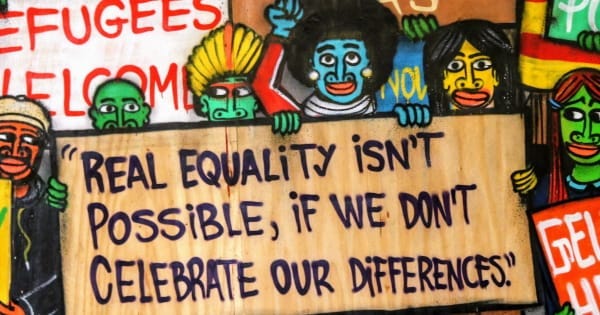 REFUGEES
WELCOME
NOW
"REAL EQUALITY ISN'T
POSSIBLE, IF WE DON'T
CELEBRATE OUR DIFFERENCES."